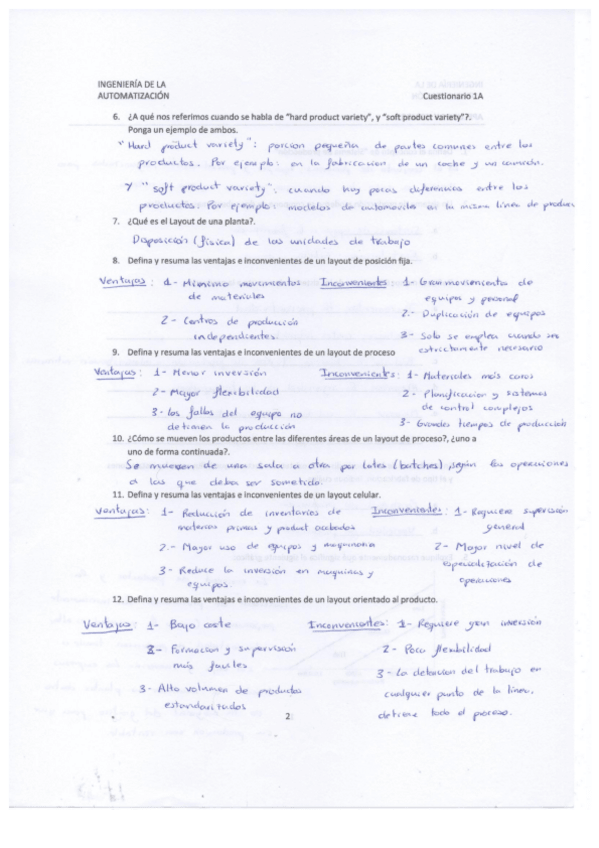 INGENIERÍA DE LA
AUTOMATIZACIÓN Cuestionario 1A
6. ¿A qué nos referimos cuando se habla de "hard product variety", y "soft product variety"?.
Ponga un ejemplo de ambos.
"Hard product variety": porcion pequeña de partes comunes entre los
productos. Por ejemplo: en la fabricacion de un coche y un camión.
Y "soft product variety": cuando hay pocas diferencias entre los
productos. Por ejemplo: modelos de automoviles en la misma linea de produc
7. ¿Qué es el Layout de una planta?.
Disposición (física) de las unidades de trabajo
8. Defina y resuma las ventajas e inconvenientes de un layout de posición fija.
Ventajas: 1- Minimo movimientos Inconvenientes: 1- Gran movimiento de
de materiales equipos y personal
2- Centros de producción 2.- Duplicación de equipos
independientes. 3- Solo se emplea cuando es
estrictamente necesario
9. Defina y resuma las ventajas e inconvenientes de un layout de proceso
Ventajas: 1- Menor inversión Inconvenientes: 1- Materiales más caros
2- Mayor flexibilidad 2. Planificacion y sistemas
3- los fallos del equipo no de control complejos
detienen la producción 3- Grandes tiempos de producción
10. ¿Cómo se mueven los productos entre las diferentes áreas de un layout de proceso?, ¿uno a
uno de forma continuada?.
Se mueven de una sala a otra por lotes (batches), según las operaciones
a las que deba ser sometido.
11. Defina y resuma las ventajas e inconvenientes de un layout celular.
Ventajas: 1- Reducción de inventarios de Inconvenientes: 1- Requiere supervisión
materias primas y product acabados general
2.- Mayor uso de equipos y maquinaria 2- Mayor nivel de
3- Reduce la inversión en maquinas y especialización de
equipos. operaciones
12. Defina y resuma las ventajas e inconvenientes de un layout orientado al producto.
Ventajas: 1- Bajo coste Inconvenientes: 1- Requiere gran inversión
2- Formacion y supervisión 2- Poca flexibilidad
más faciles 3- La detencion del trabajo en
3- Alto volumen de productos cualquier punto de la línea,
estandarizados detiene todo el proceso.
2